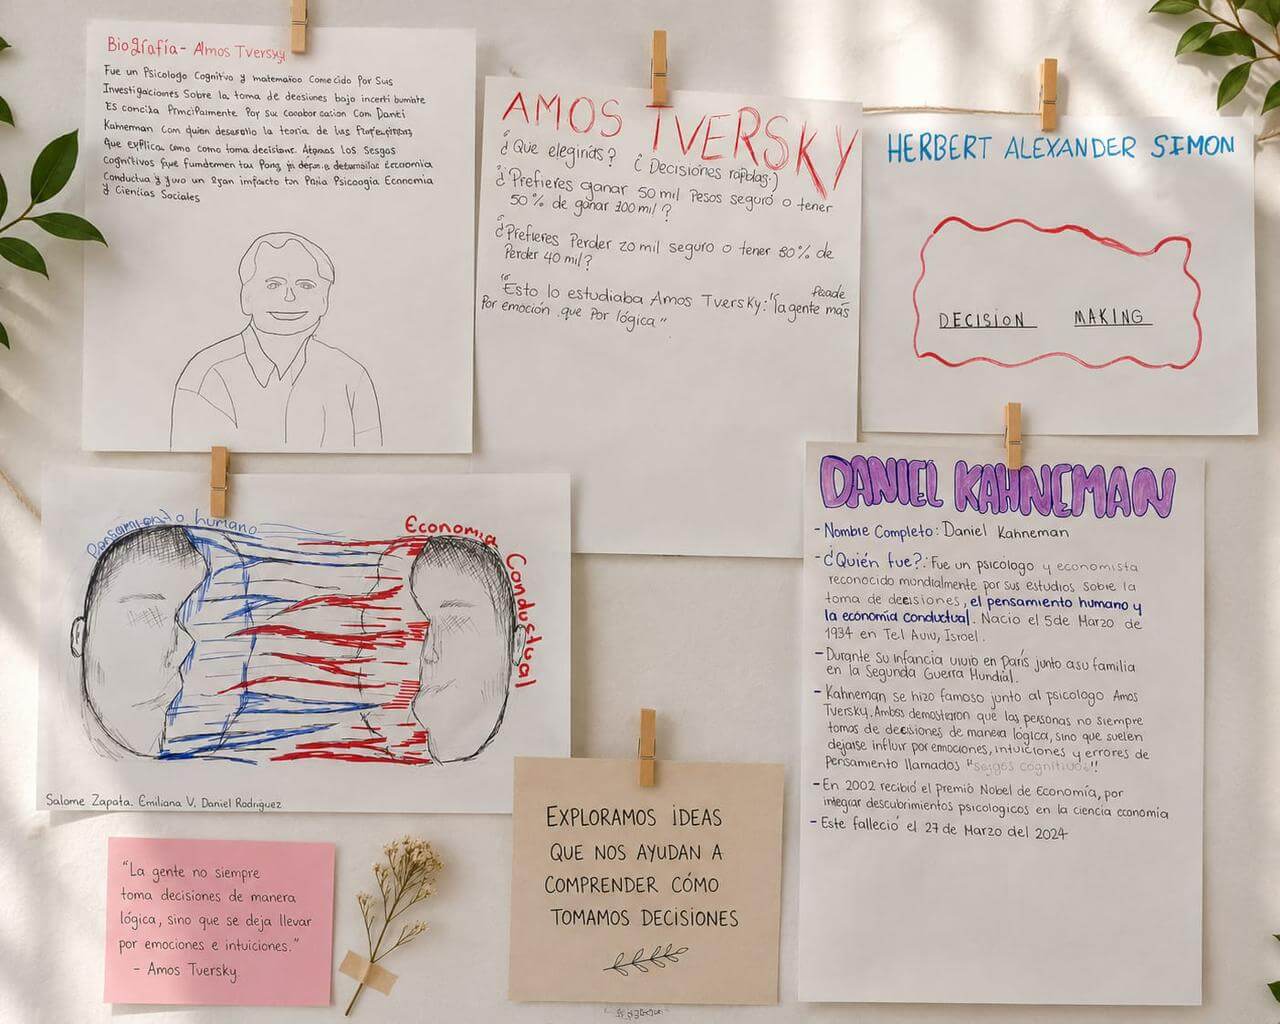 Biografía - Amos Tversky
Fue un Psicologo Cognitivo y matematico Conocido Por Sus
Investigaciones Sobre la toma de desiones bajo incerti bumbte
Es conciba Principalmente Por su coraboracion Com Danci
Kahneman Com quien desarollo la teoria de las
que explica como como toma decisione. Atgmas los Sesgos
Cognitivos
Conductua y
y Ciencias Sociales
AMOS TVERSKY
¿Que elegirias? ¿Decisiones rápidas:)
¿Prefieres ganar 50 mil Pesos seguro o tener
50% de ganar 100 mil?
¿Prefieres Perder 20 mil seguro o tener 50% de
Perder 40 mil?
"Esto lo estudiaba Amos Tversky: "la gente más
Por emoción que Por lógica"
HERBERT ALEXANDER SIMON
DECISION MAKING
Pensamiento humano
Economia Conductual
Salome Zapata. Emiliana V. Daniel Rodriguez
DANIEL KAHNEMAN
- Nombre Completo: Daniel Kahneman
- ¿Quién fue?: Fue un psicólogo y economista
reconocido mundialmente por sus estudios sobre la
toma de decisiones, el pensamiento humano y
la economía conductual. Nacio el 5 de Marzo de
1934 en Tel Aviv, Isroel.
- Durante su infancia vivio en París junto a su familia
en la Segunda Guerra Mundial.
- Kahneman se hizo famoso junto al psicologo Amos
Tversky. Ambos demostraron que las personas no siempre
tomas de decisiones de manera lógica, sino que suelen
dejarse influir por emociones, intuiciones y errores de
pensamiento llamados "sesgos cognitivos"!
- En 2002 recibió el premio Nobel de Economía, por
integrar descubrimientos psicologicos en la ciencia economía
- Este falleció el 27 de Marzo del 2024
"La gente no siempre
toma decisiones de manera
lógica, sino que se deja llevar
por emociones e intuiciones."
- Amos Tversky.
EXPLORAMOS IDEAS
QUE NOS AYUDAN A
COMPRENDER CÓMO
TOMAMOS DECISIONES